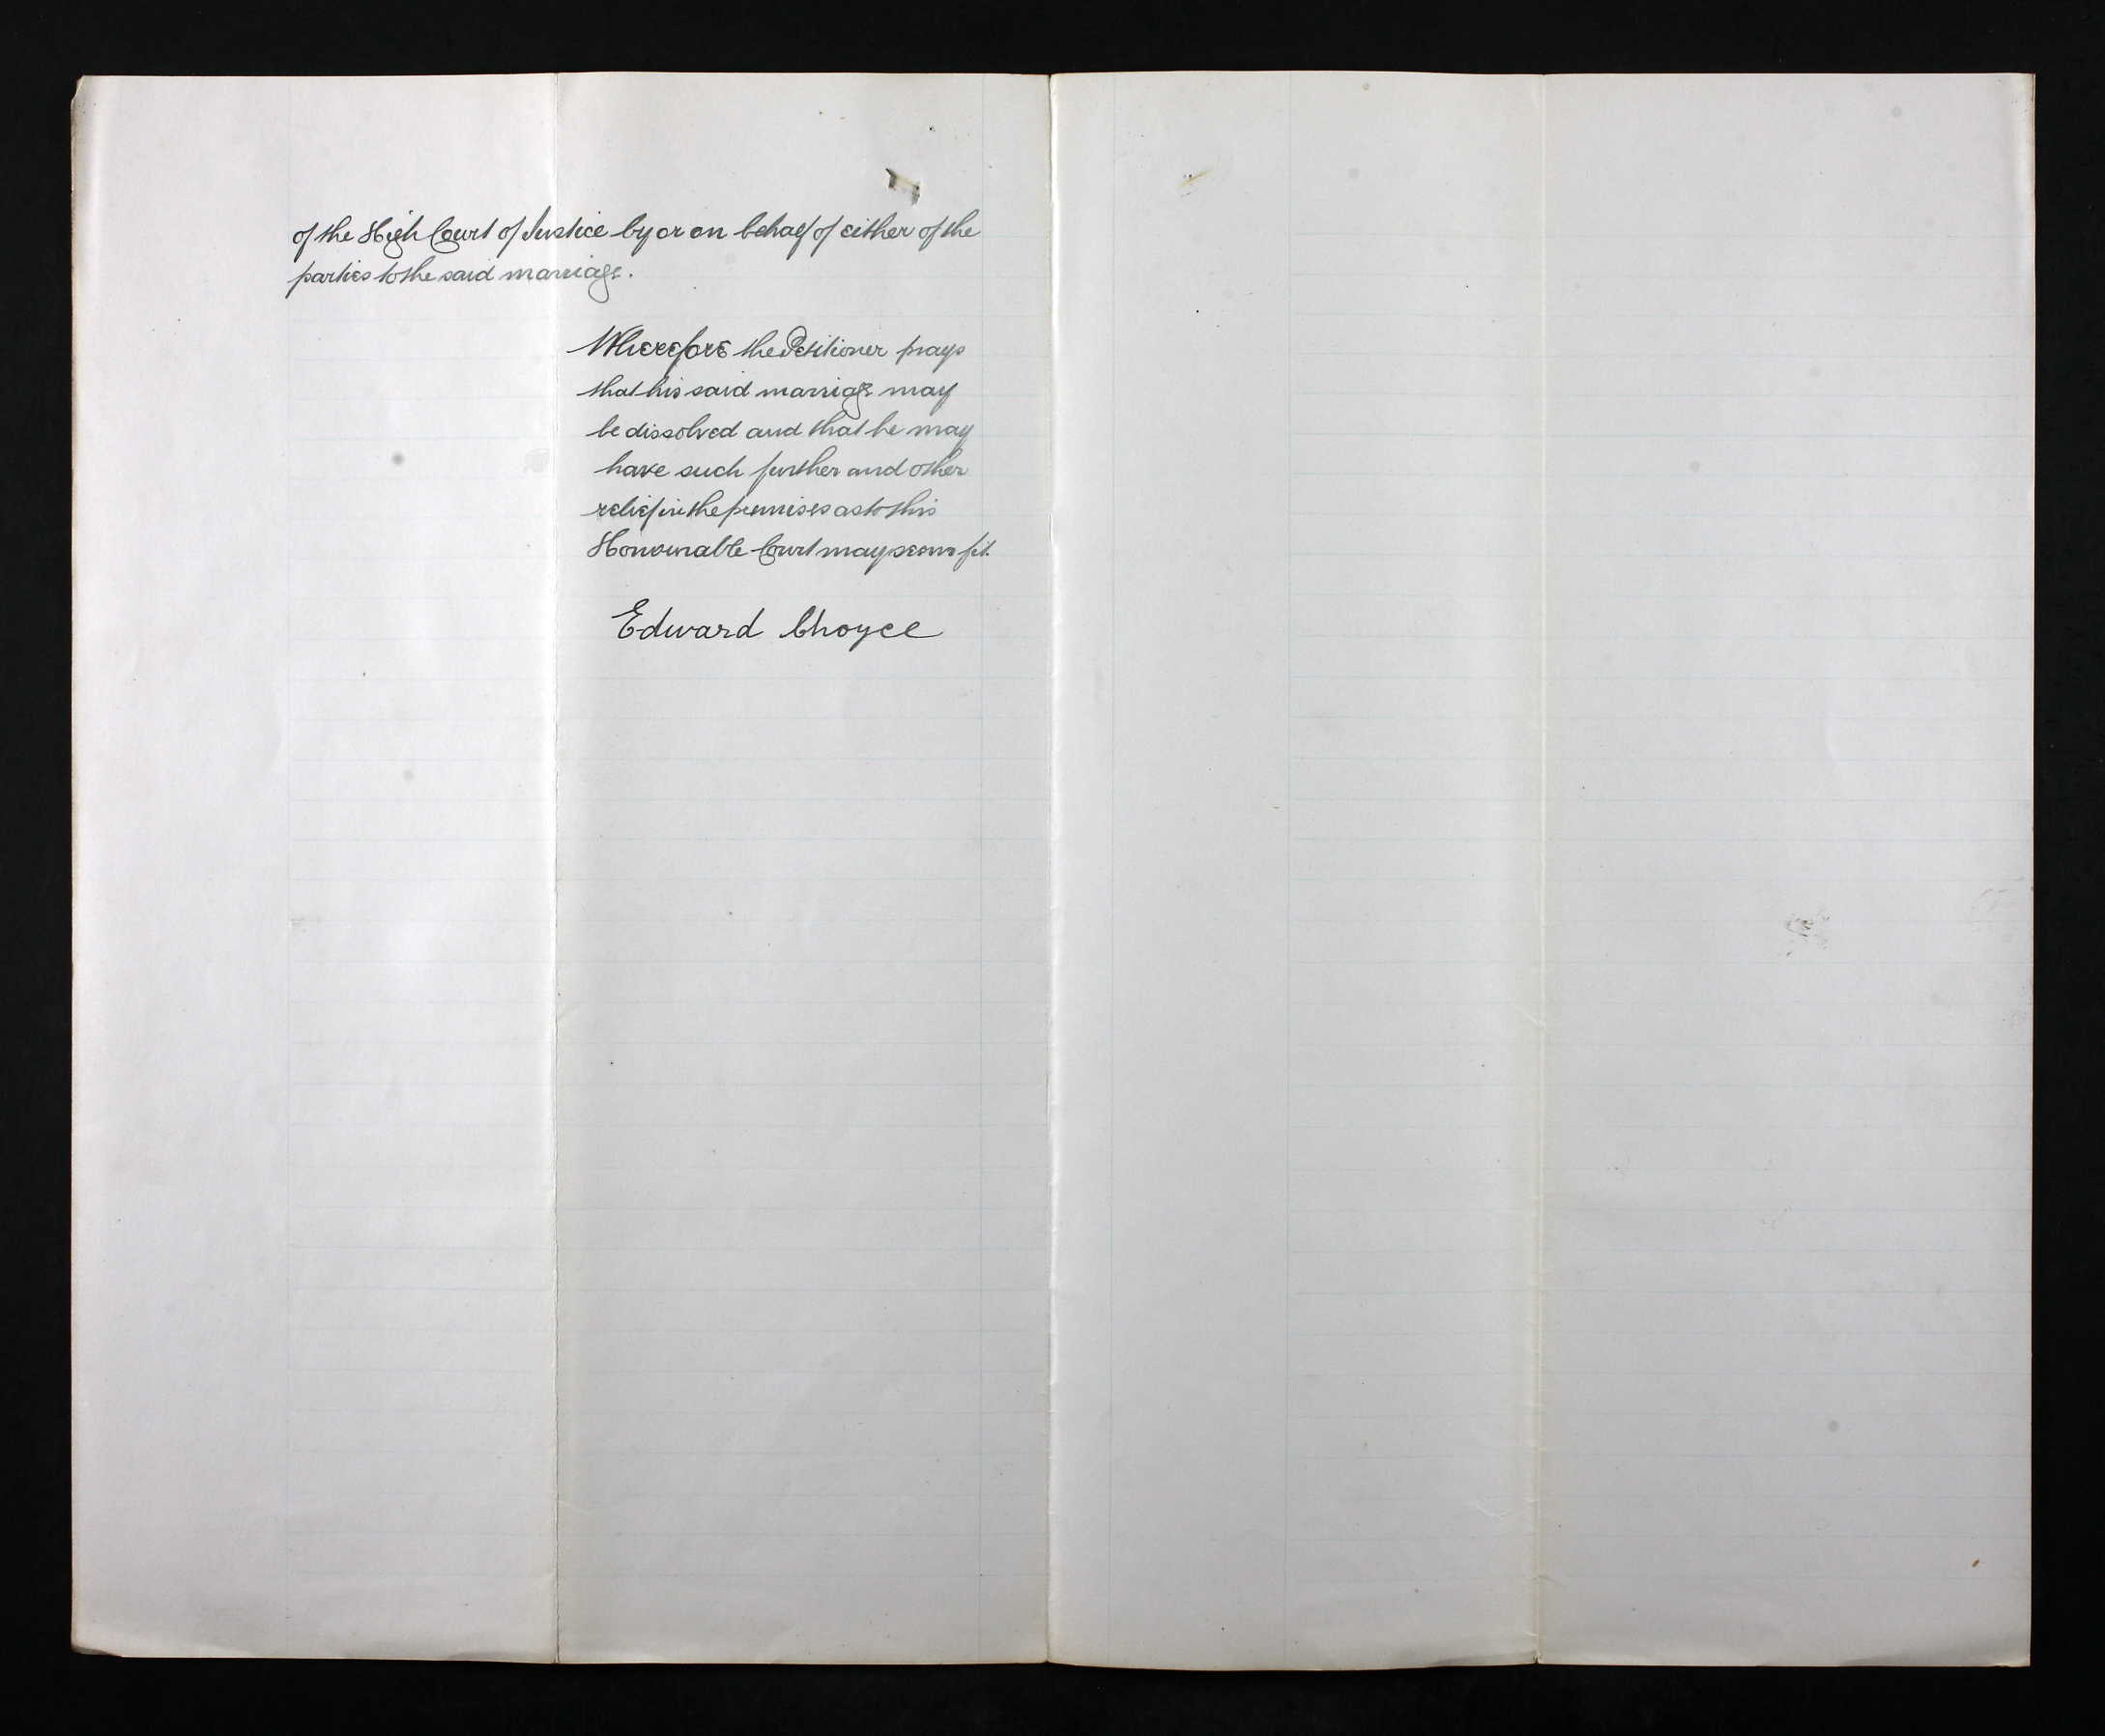 of the High Court of Justice by or on behalf of either of the
parties to the said marriage.
Wherefore the Petitioner prays
that his said marriage may
be dissolved and that he may
have such further and other
relief in the premises as to this
Honourable Court may seem fit.
Edward Choyce